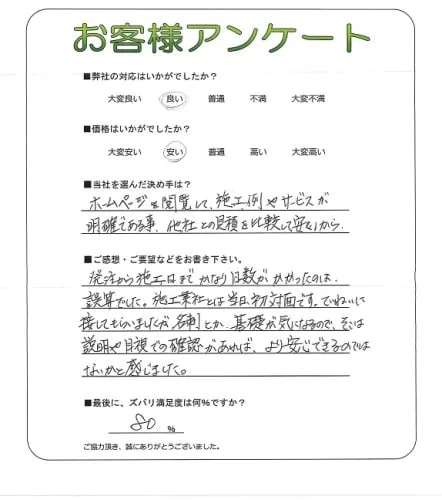 お客様アンケート
■弊社の対応はいかがでしたか?
大変良い 良い 普通 不満 大変不満
■価格はいかがでしたか?
大変安い 安い 普通 高い 大変高い
■当社を選んだ決め手は?
ホームページを閲覧して、施工例やサービスが
明確である事、他社との見積を比較して安いから。
■ご感想・ご要望などをお書き下さい。
発注から施工日までかなり日数がかかったのは、
誤算でした。施工業社とは当日、初対面です。ていねいに
接してもらいましたが、 とか、基礎が気になるので、そこは
説明や目視での確認があれば、より安心できるのでは
ないかと感じました。
■最後に、ズバリ満足度は何%ですか?
80 %
ご協力頂き、誠にありがとうございました。